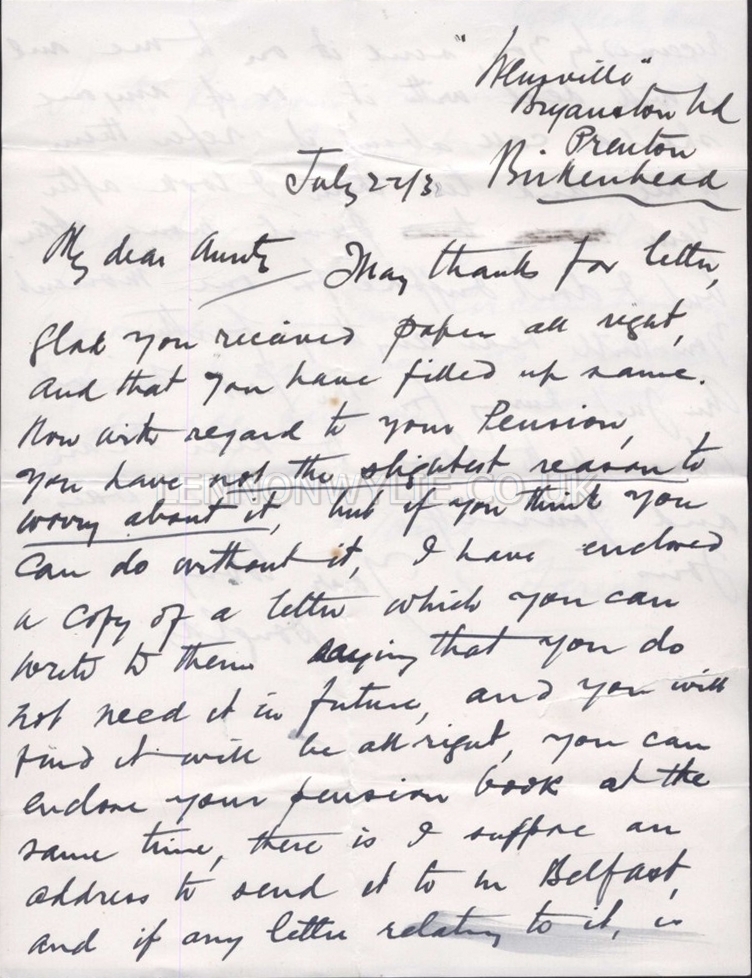 "
Bryanston Rd
Prenton
July 27/3 Birkenhead
My dear Aunty
Many thanks for letter,
Glad you recieved paper all right,
and that you have filled up same.
Now with regard to your Pension,
you have not the slightest reason to
LENNONWYLIE.CO.UK
worry about it, but if you think you
can do without it, I have enclosed
a copy of a letter which you can
write to them saying that you do
not need it in future, and you will
find it will be all right, you can
enclose your pension book at the
same time, there is I suppose an
address to send it to in Belfast,
and if any letter relating to it, is